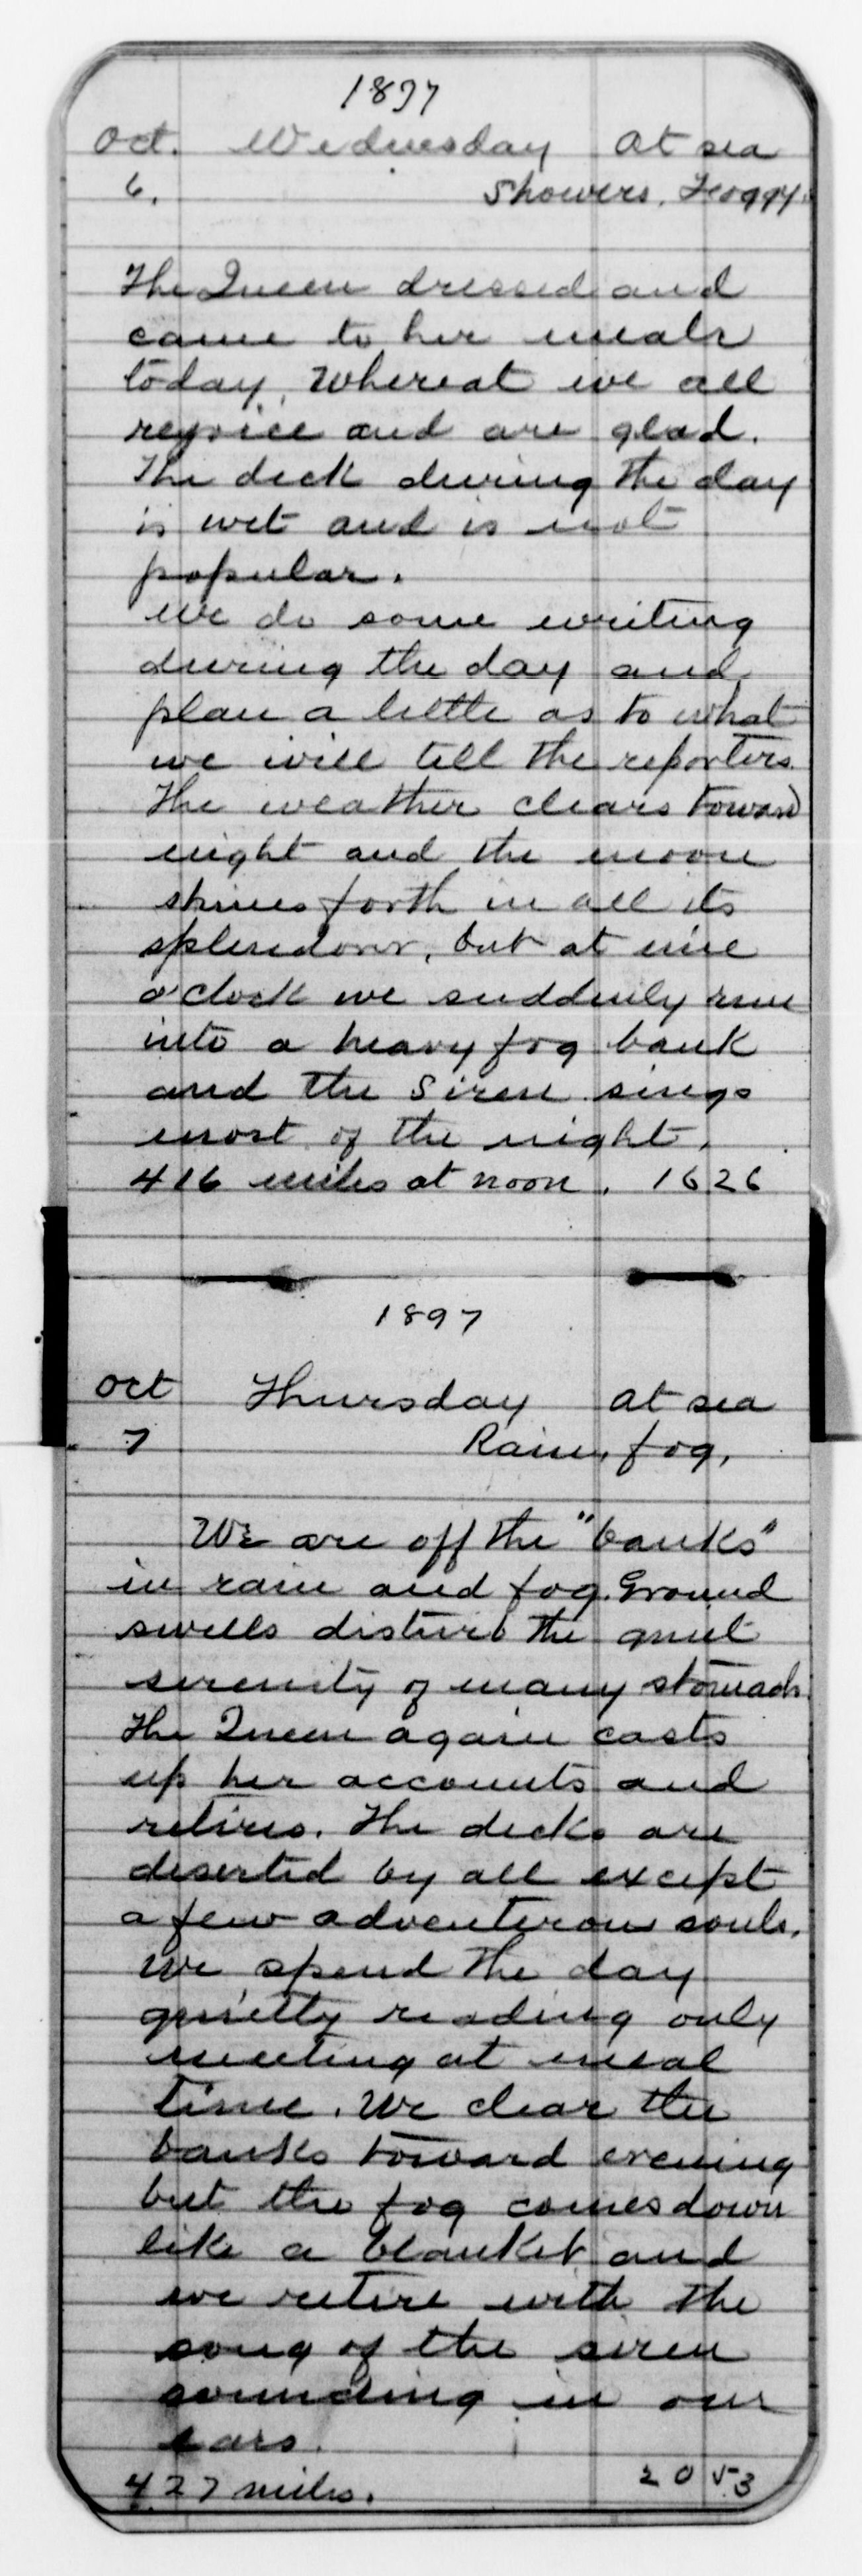 1897
Oct. Wednesday at sea
6. Showers. Foggy.
The Queen dressed and
came to her meals
today. Whereat we all
rejoice and are glad.
The deck during the day
is wet and is not
popular.
We do some writing
during the day and
plan a little as to what
we will tell the reporters.
The weather clears toward
night and the moon
shines forth in all its
splendour, but at nine
o'clock we suddenly run
into a heavy fog bank
and the Siren sings
most of the night.
416 miles at noon. 1626
1897
Oct Thursday at sea
7 Rain, fog,
We are off the "banks"
in rain and fog. Ground
swells disturb the quiet
serenity of many stomachs.
The Queen again casts
up her accounts and
retires. The decks are
deserted by all except
a few adventerous souls.
We spend the day
quietly reading only
meeting at meal
time. We clear the
banks toward evening
but the fog comes down
like a blanket and
we retire with the
song of the siren
sounding in our
ears.
427 miles. 2053